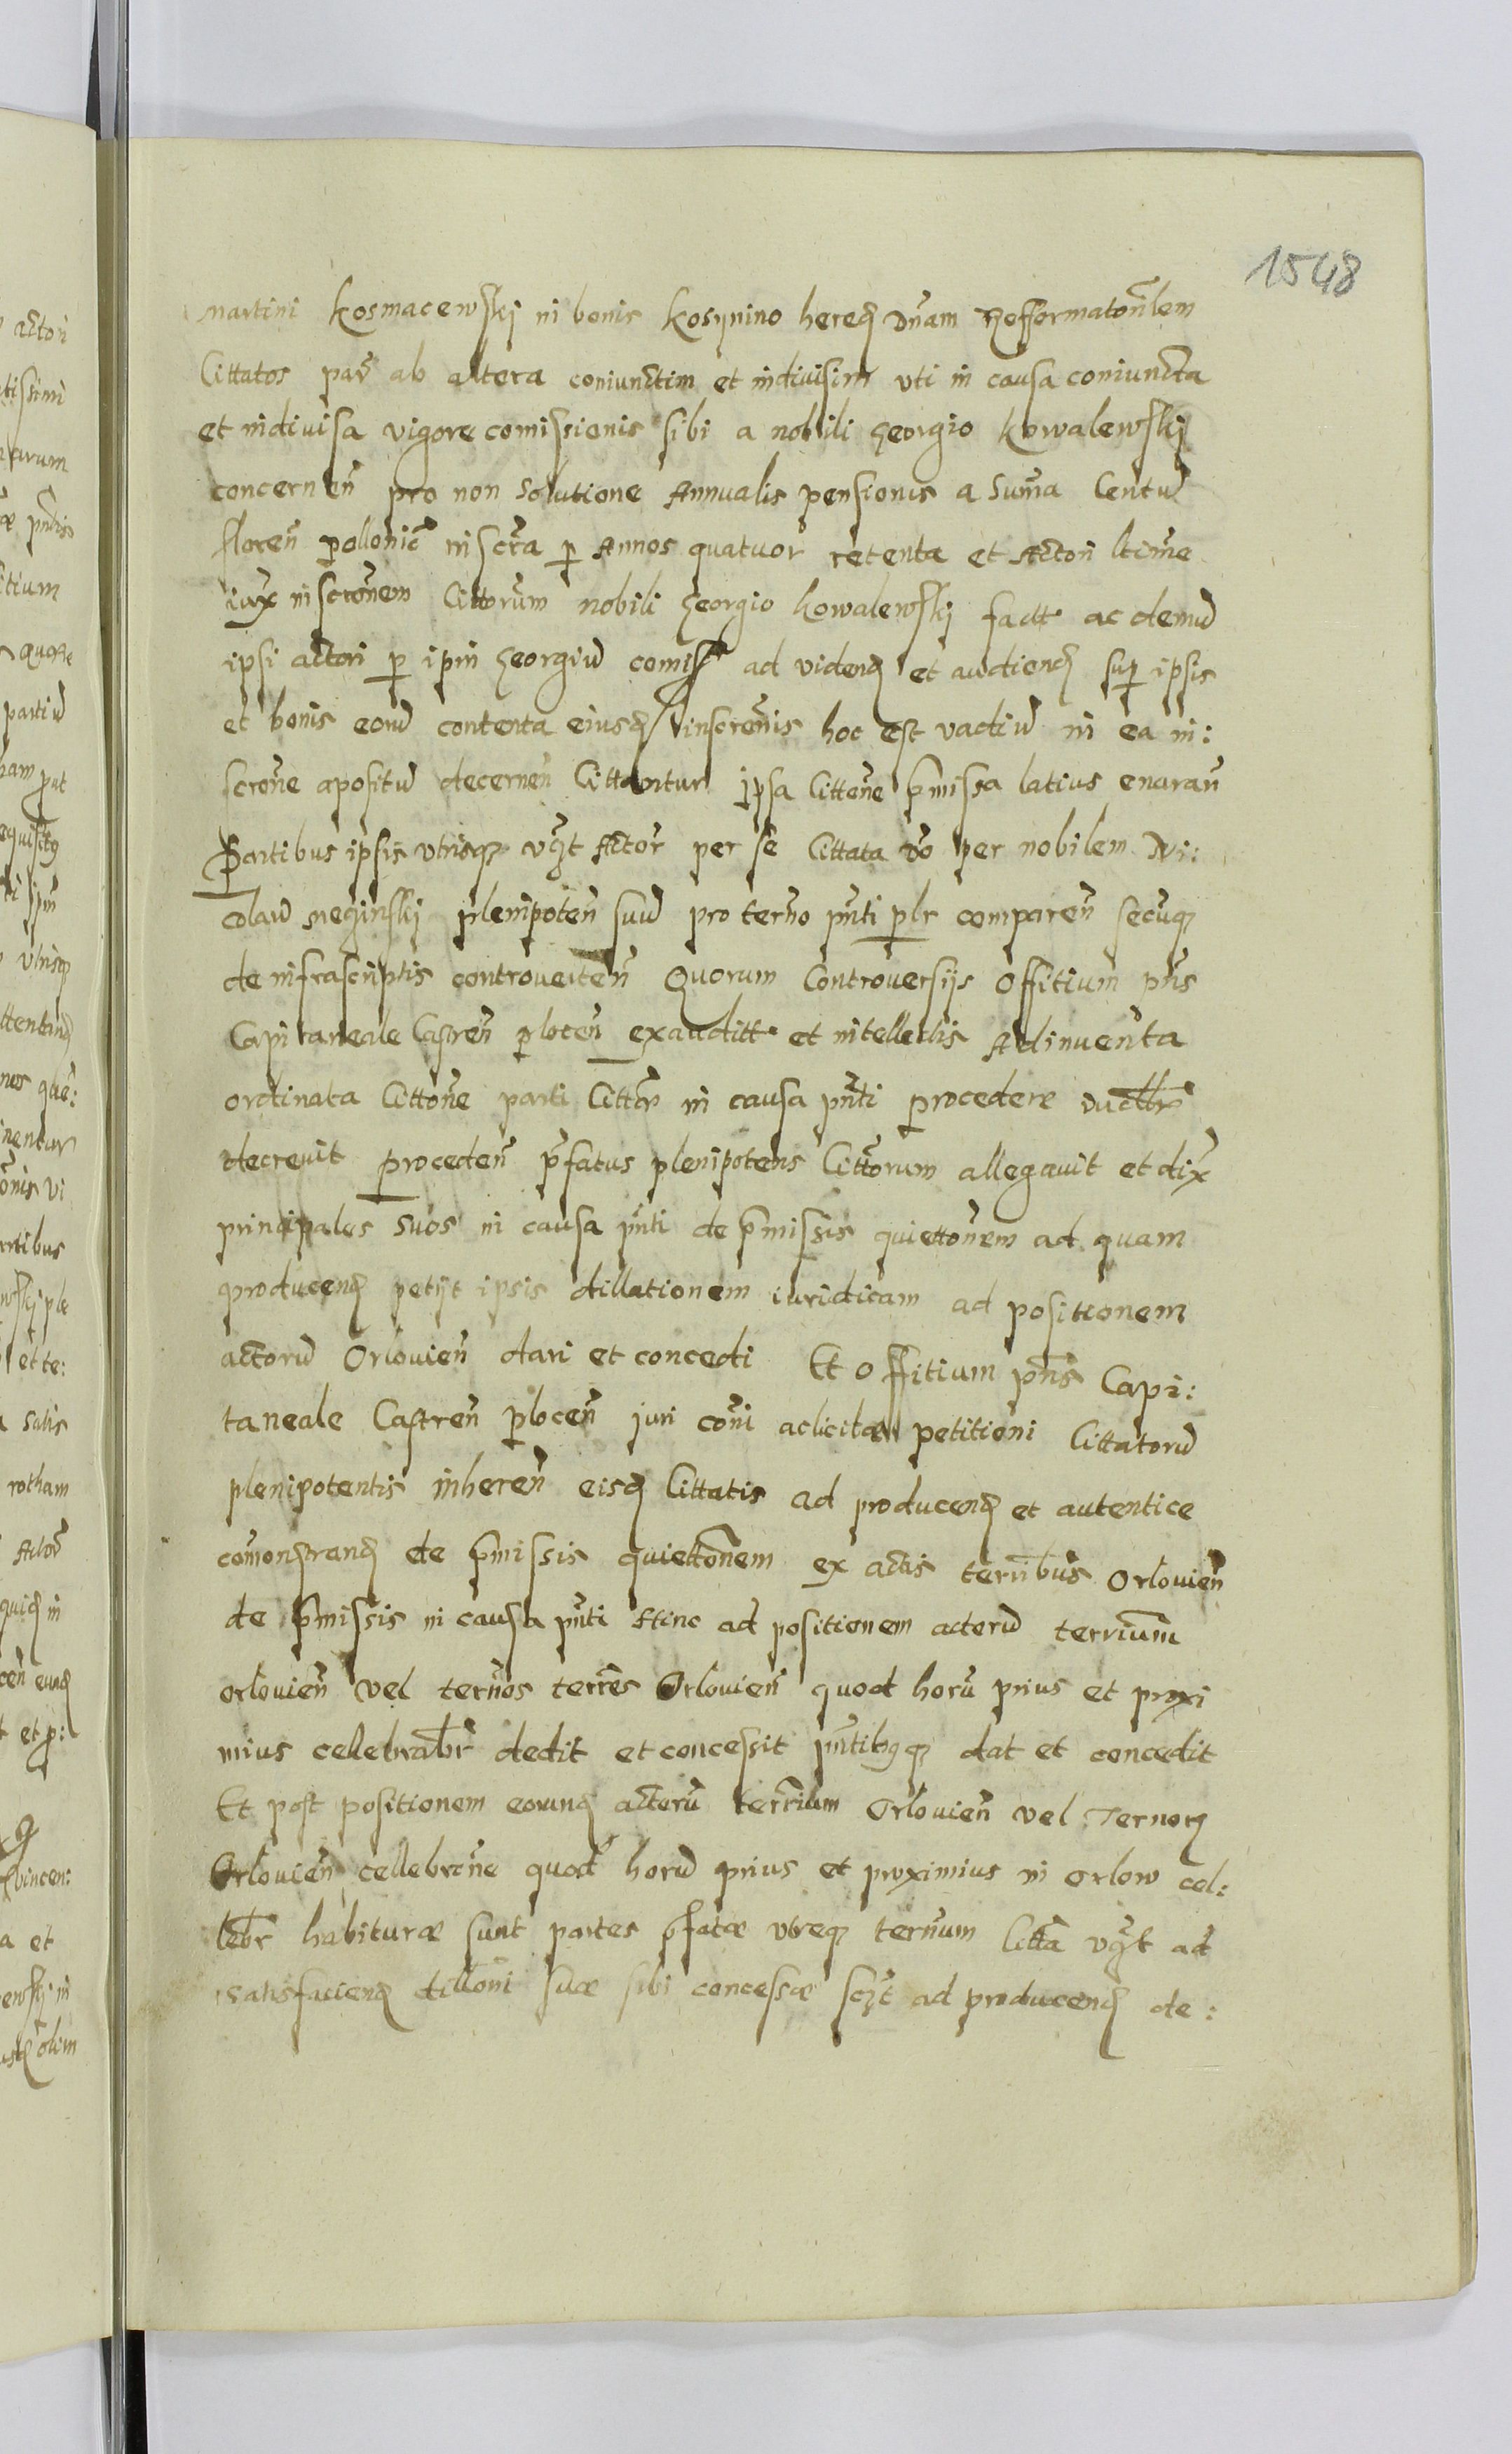 1548
Martini Kosmacewskj in bonis Kosynino hered Dnam Refformatonlem
Cittatos par ab altera coniunctim et indiuisim vti in causa coniuncta
et indiuisa vigore comissionis sibi a nobili Georgio Kowalewskj
concernen pro non solutione Annualis pensionis a Suma Centu
floren pollonic inscra p Annos quatuor retenta et Actori ltime
iux inscronem Cittorum nobili Georgio Kowalewskj factt ac demu
ipsi actori p ipm Georgiu comiss ad videnđ et audienđ sup ipsis
et bonis eoru contenta eiusđ inscronis hoc est vadiu in ea in:
scrone apositu decernen Cittantur ipsa Cittone pmissa latius enaran
Partibus ipsis vtrisqz vzt Actor per se Cittata vo per nobilem Ni:
colau Meginskj plenipoten suu pro terno pnti plr comparen secuqz
de infrascriptis controuerten Quorum Controuersijs Offitium pns
Capitaneale Castren plocen exauditt et intellectis Adinuenta
ordinata Cittone parti Cittae in causa pnti procedere ductt
decreuit proceden pfatus plenipotens Cittorum allegauit et dix
principales suos in causa pnti de pmissis quiettonem ad quam
producenđ petijt ipsis dillationem iuridicam ad positionem
actoru Orlouien dari et concedi Et Offitium pns Capi:
taneale Castren plocen juri coni ac licitae petitioni Cittatoru
plenipotentis inheren eisđ Cittatis ad producenđ et autentice
comonstranđ de pmissis quiettonem ex actis terribus Orlouien
de pmissis in causa pnti Hinc ad positionem actoru terrium
orlouien vel ternos terres Orlouien quod horu prius et proxi
mius cellebrabr dedit et concessit pntibqz dat et concedit
Et post positionem eorunđ actoru terrium Orlouien vel Ternor
Orlouien cellebrone quod horu prius et proximius in Orlow cel:
lebr habiturae sunt partes pfatae vtreqz ternum Citta vzt ad
satisfacienđ dilloni suae sibi concessae sczt ad producenđ de: